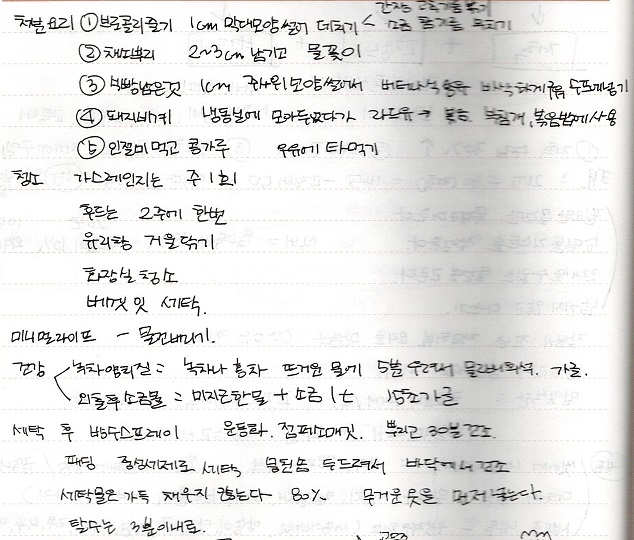 간장 고추기름 볶기
처분요리 ① 브로콜리줄기 1cm 막대모양 썰어 데치기 < 소금 참기름 무치기
② 채소뿌리 2~3cm 남기고 물꽂이
③ 식빵남은것 1cm 주사위모양 썰어서 버터나 식용유 바삭하게 구워 수프에넣기
④ 돼지비계 냉동실에 모아두었다가 라드유 → 볶음. 부침개, 볶음밥에 사용
⑤ 인절미 먹고 콩가루 우유에 타먹기
청소 가스레인지는 주 1회
후드는 2주에 한번
유리창 거울닦기
화장실 청소
베갯잇 세탁.
미니멀라이프 - 물건버리기.
건강 녹차양치질 = 녹차나 홍차 뜨거운 물에 5분 우려서 물러서 희석. 가글.
외출후 소금물 = 미지근한물 + 소금 1t 15초 가글
세탁 후 방수스프레이 운동화. 점퍼소매깃. 뿌리고 30분 건조.
패딩 중성세제로 세탁 뭉친솜 두드려서 바닥에서 건조
세탁물은 가득 채우지 않는다 80% 무거운 옷을 먼저 넣는다.
탈수는 3분이내로.